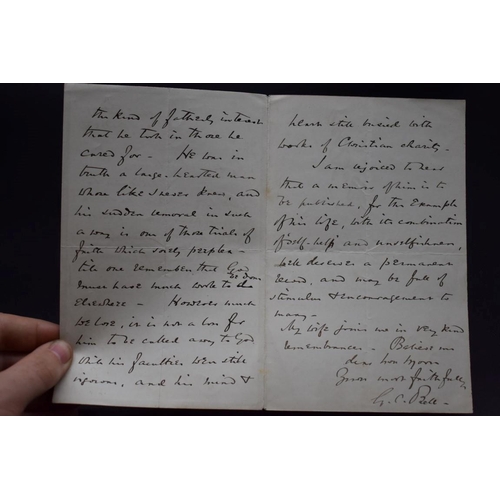 the kind of fatherly interest
that he took in those he
cared for - He was in
truth a large-hearted man
whose like I never knew, and
his sudden removal in such
a way is one of those trials of
faith which sorely perplex -
till one remembers that God
must have much work to be done
Elsewhere - However much
we love, it is not a loss for
him to be called away to God
while his faculties were still
vigorous, and his mind &
heart still busied with
works of Christian charity.
I am rejoiced to hear
that a memoir of him is to
be published, for the Example
of his life, with its combination
of self-help and unselfishness,
well deserves a permanent
record, and may be full of
stimulus & encouragement to
many -
My wife joins me in very kind
remembrances - Believe me
dear
Yours most faithfully
G. C. Bell -